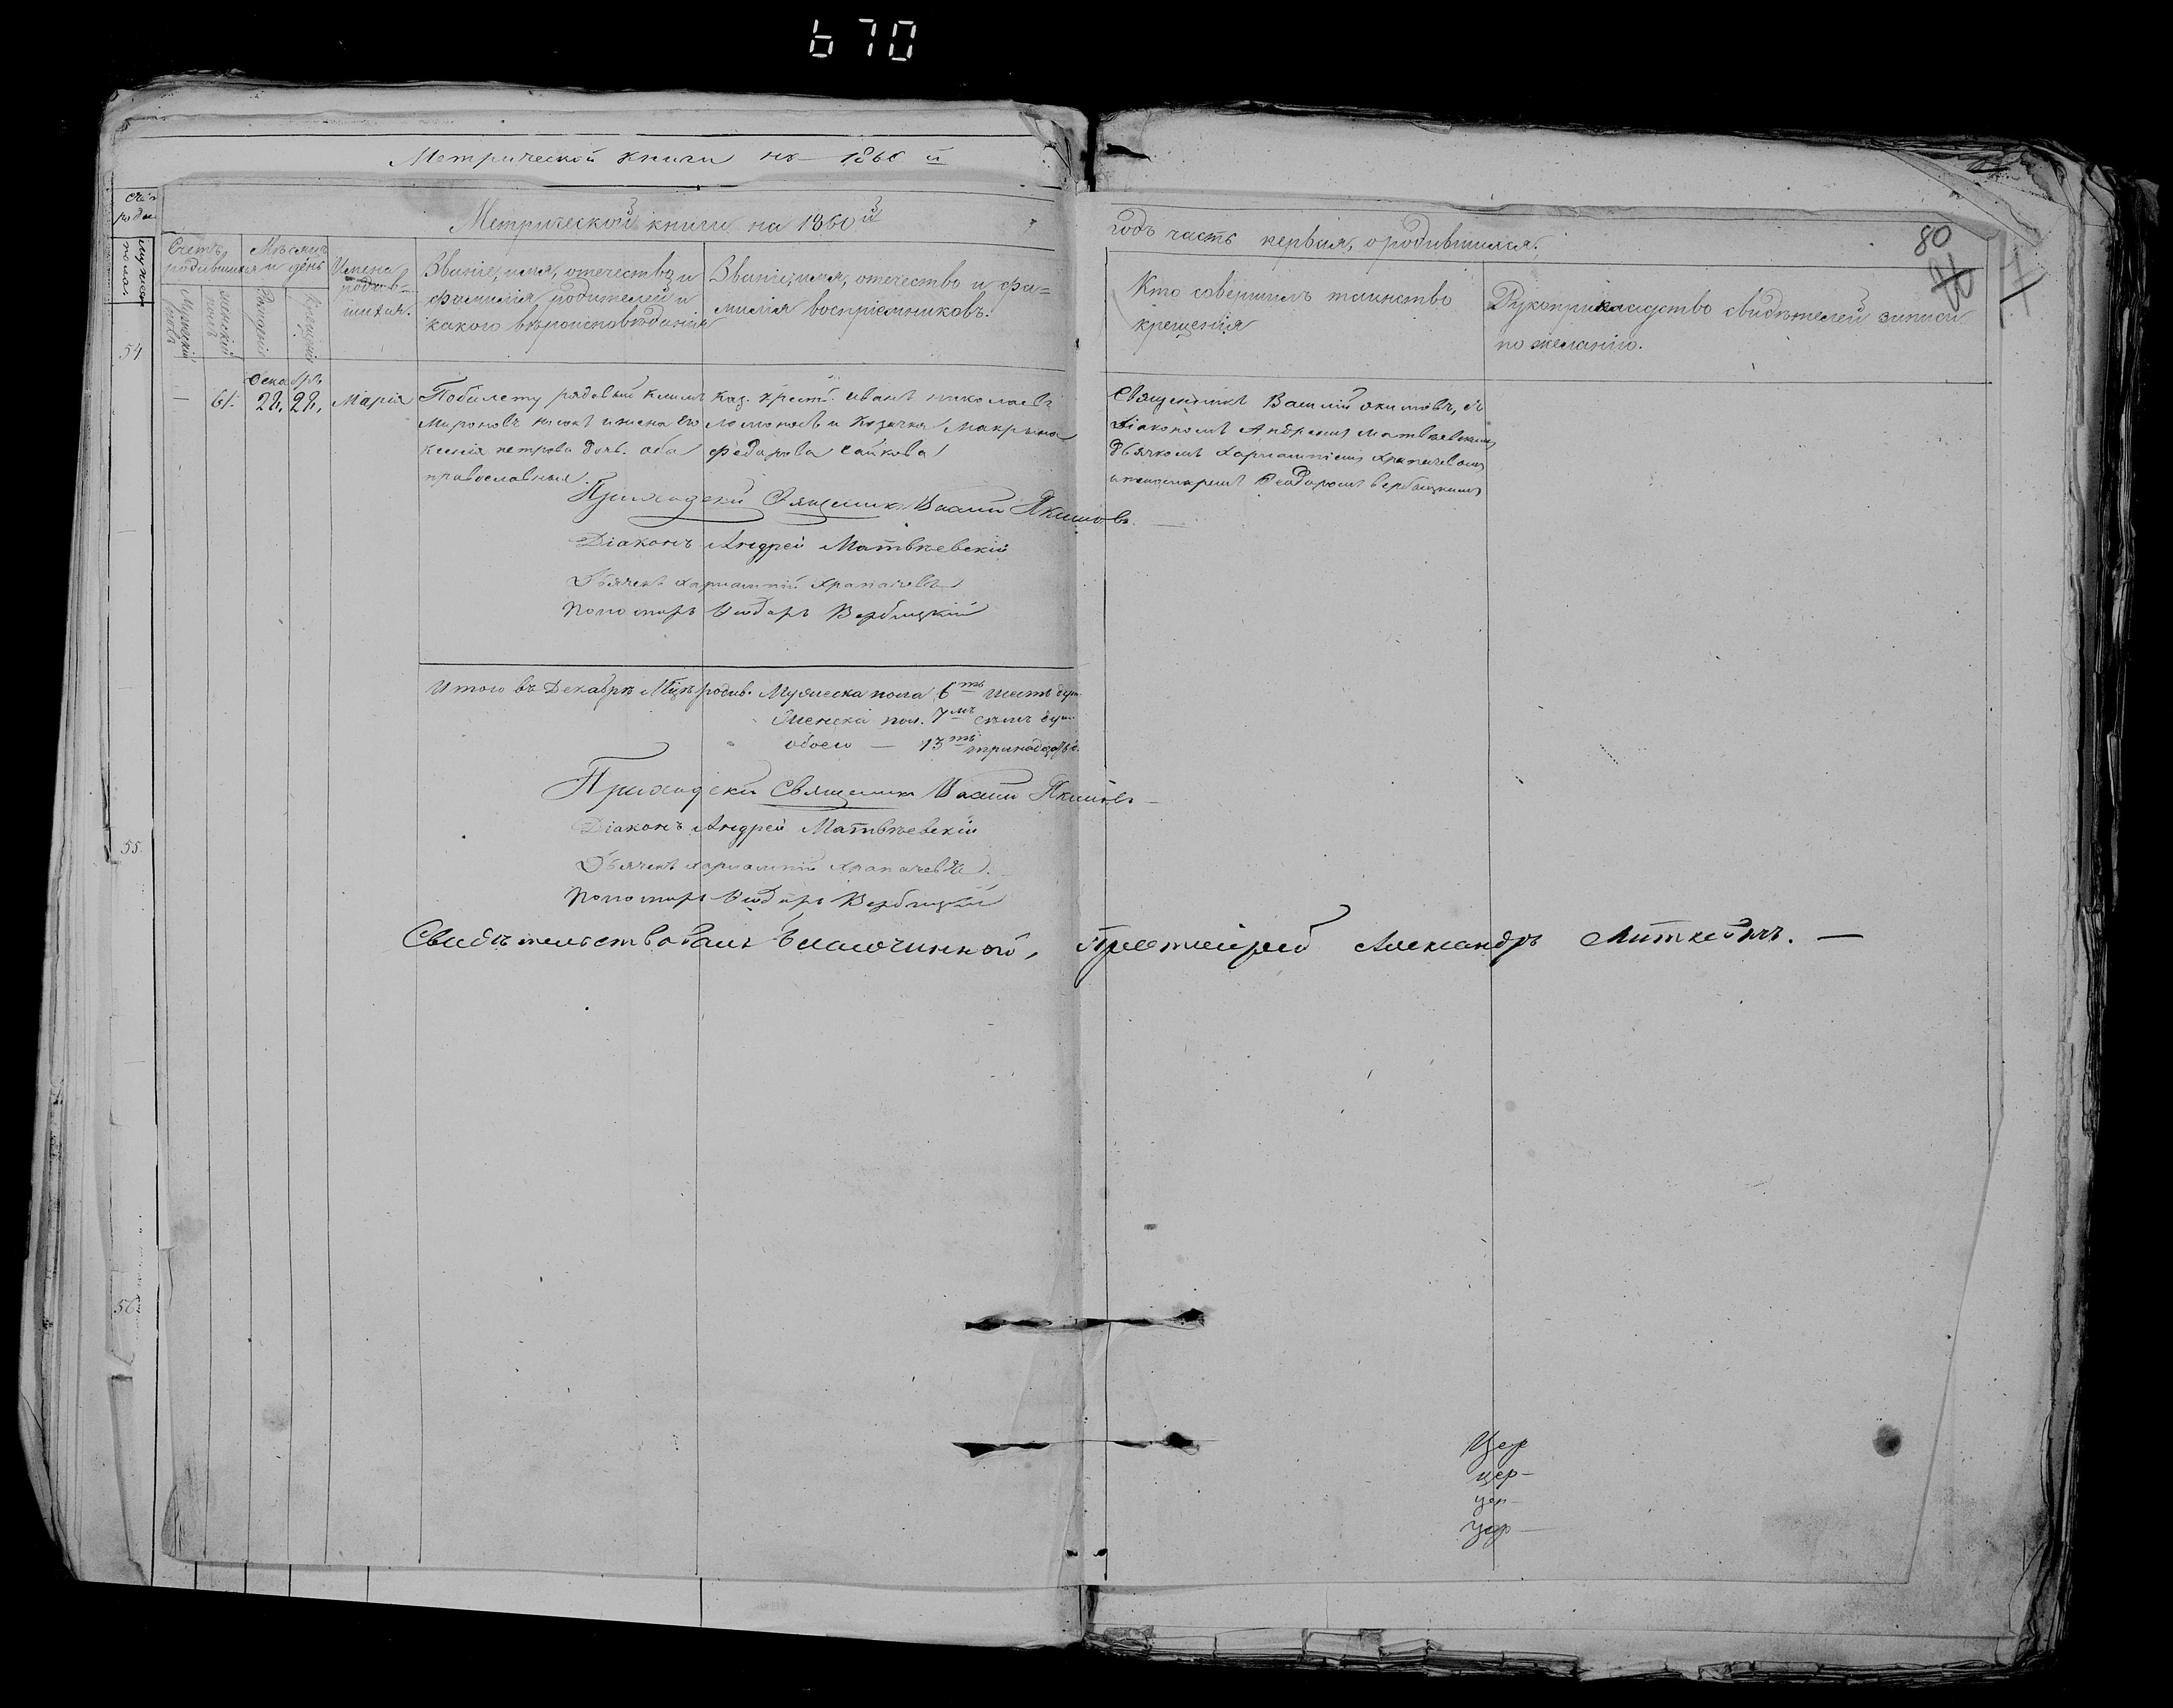 670
Метрической книги на 1860 й
Метрической книги на 1860й
годъ часть первая, о родившихся.
80
Счетъ родившихся
Мѣсяцъ и день
Имена родив-
шихся.
Званіе, имя, отечество и
фамилія родителей и
какого вѣроисповѣданія
Званіе, имя, отечество и фа=
милія воспріемниковъ.
Кто совершилъ таинство
крещенія
Рукоприкладство свидѣтелей записи
по желанію.
Мужескій полъ
женскій полъ
Рожденія
Крещенія
54
Декабрь
61. 28. 28. Марія
Побилету рядовый Климъ
Мироновъ и жена его
петрова дочь. оба
православные.
Каз. крест. иванъ николаевъ
и Козачка Макрина
федорова
Священникъ Василій Якимовъ, съ
Діакономъ Андреемъ Матвѣевскимъ
Дьячкомъ Харлампіемъ Храпачевымъ
и пономаремъ Феодоромъ Вербицкимъ
Приходскій Священникъ Василій Якимовъ.
Діаконъ Андрей Матвѣевскій
Дьячекъ Харлампій Храпачевъ
Пономарь Феодоръ Вербицкій
Итого въ Декабрѣ М҃цѣ родив. Мужеска пола 6ть шесть душ.
Женска пол. 7мь семь душ.
обоего — 13ть тринадцать
Приходскій Священникъ Василій Якимовъ
Діаконъ Андрей Матвѣевскій
55.
Дьячекъ Харлампій Храпачевъ.
Пономарь Феодоръ Вербицкій
Свидѣтельствовалъ благочинной, Протоіерей Александръ Миткевичъ. —
56
Цер
цер-
цер-
Цер-